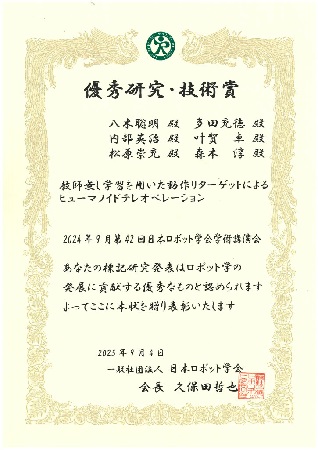 優秀研究・技術賞
八木聡明 殿 多田充徳 殿
内部英治 殿 叶賀 卓 殿
松原崇充 殿 森本 淳 殿
教師無し学習を用いた動作リターゲットによる
ヒューマノイドテレオペレーション
2024年9月第42回日本ロボット学会学術講演会
あなたの標記研究発表はロボット学の
発展に貢献する優秀なものと認められます
よってここに本状を贈り表彰いたします
2025年9月4日
一般社団法人 日本ロボット学会
会長 久保田哲也